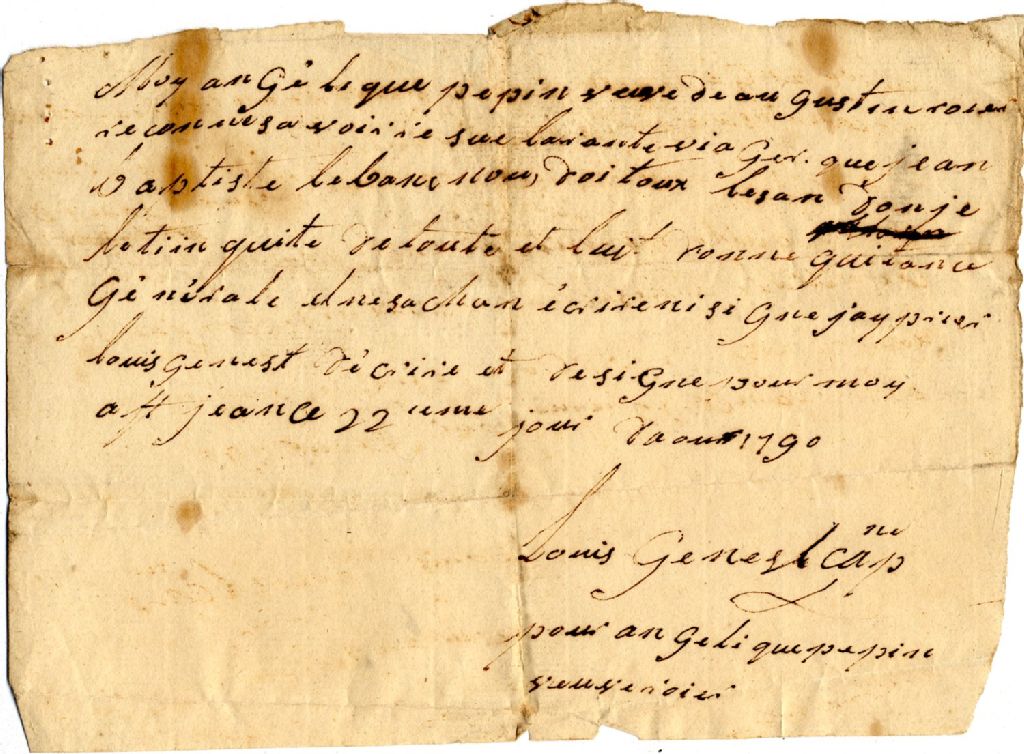 Moy angélique pepin veuve de augustin roier
reconnes avoir resue la rante viager. que jean
baptiste leblanc nous doi toux lesan donje
le tiin quite de toute et luit donne quitance
Générale et ne sachan écrire ni signe jay prier
louis genest décrire et de signe pour moy
a st jean ce 22ieme jour daout 1790
Louis Genest capne
pour angelique pepin
veuve roier